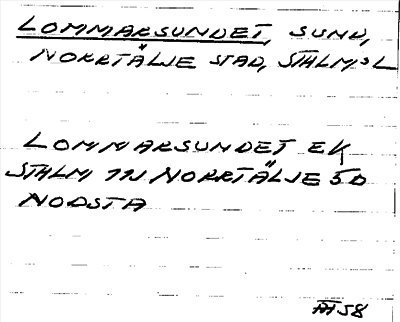 LOMMARSUNDET, SUND,
NORRTÄLJE STAD, STHLM:S L
LOMMARSUNDET EK
STHLM 11J NORRTÄLJE 5D
NODSTA
58